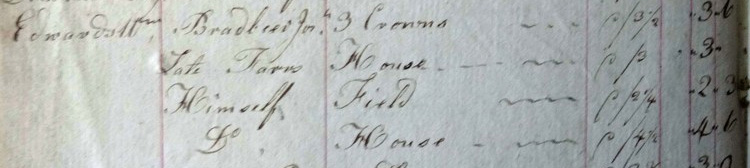 Edwards Wm, Bradbury Jos. 3 Crowns ρ/3½ "3"6
Late Farrs House ρ/3 "3"
Himself Field ρ/2¼ "2"3
Do House ρ/4½ "4"6